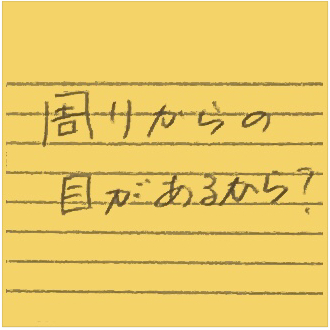 周りからの
目があるから?